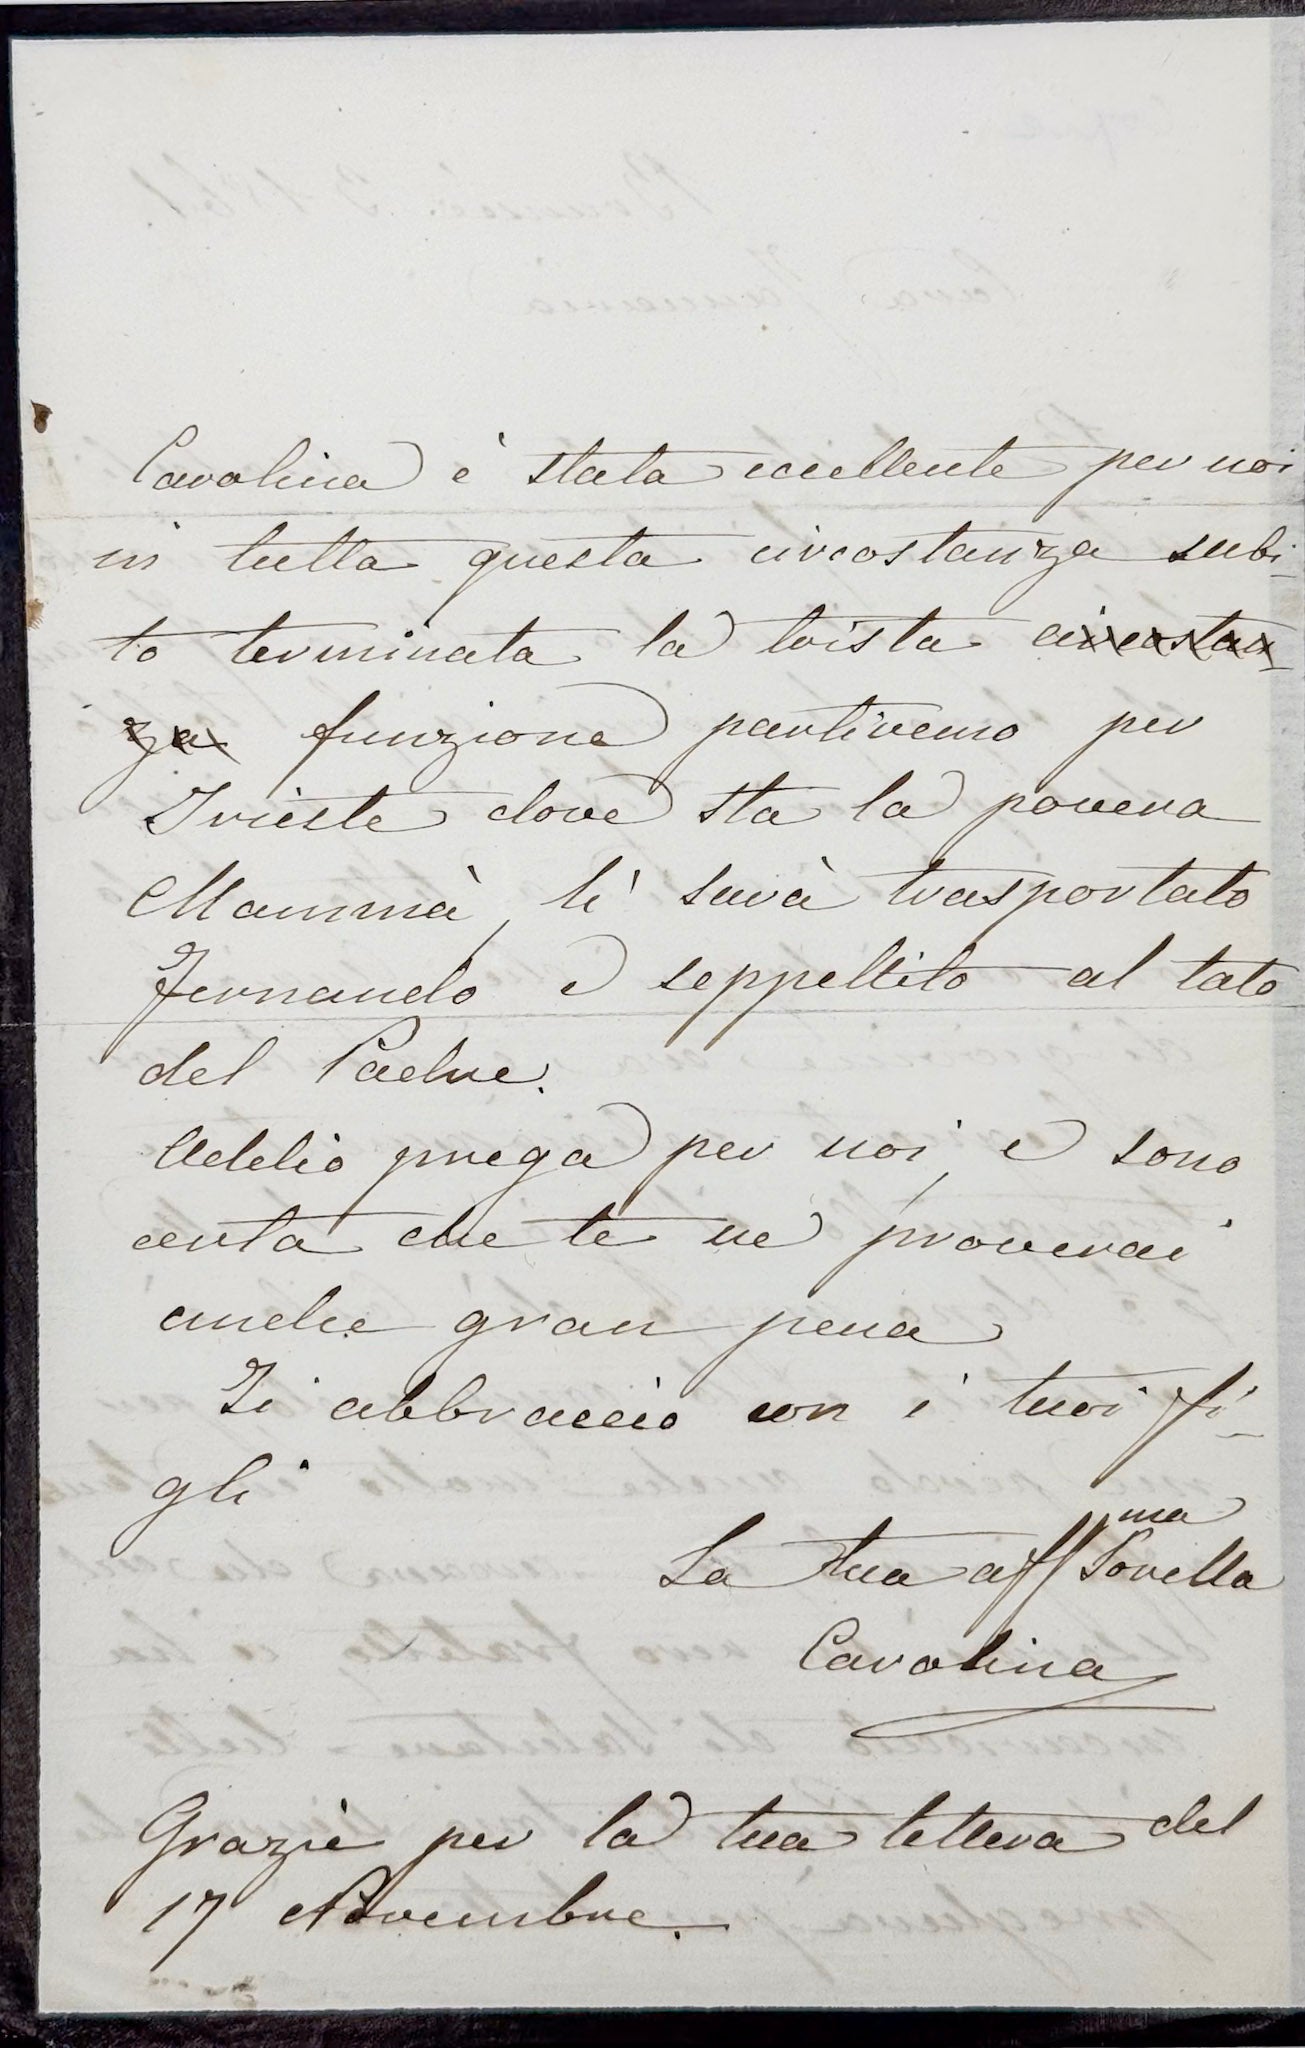 Carolina è stata eccellente per noi
in tutta questa circostanza subi-
to terminata la trista circostan-
za funzione partiremo per
Trieste dove sta la povera
Mammà, lì sarà trasportato
Fernando e seppellito al lato
del Padre.
Addio prega per noi, e sono
certa che te ne proverai
anche gran pena
Ti abbraccio con i tuoi fi-
gli
La tua aff.ma Sorella
Carolina
Grazie per la tua lettera del
17 Novembre.